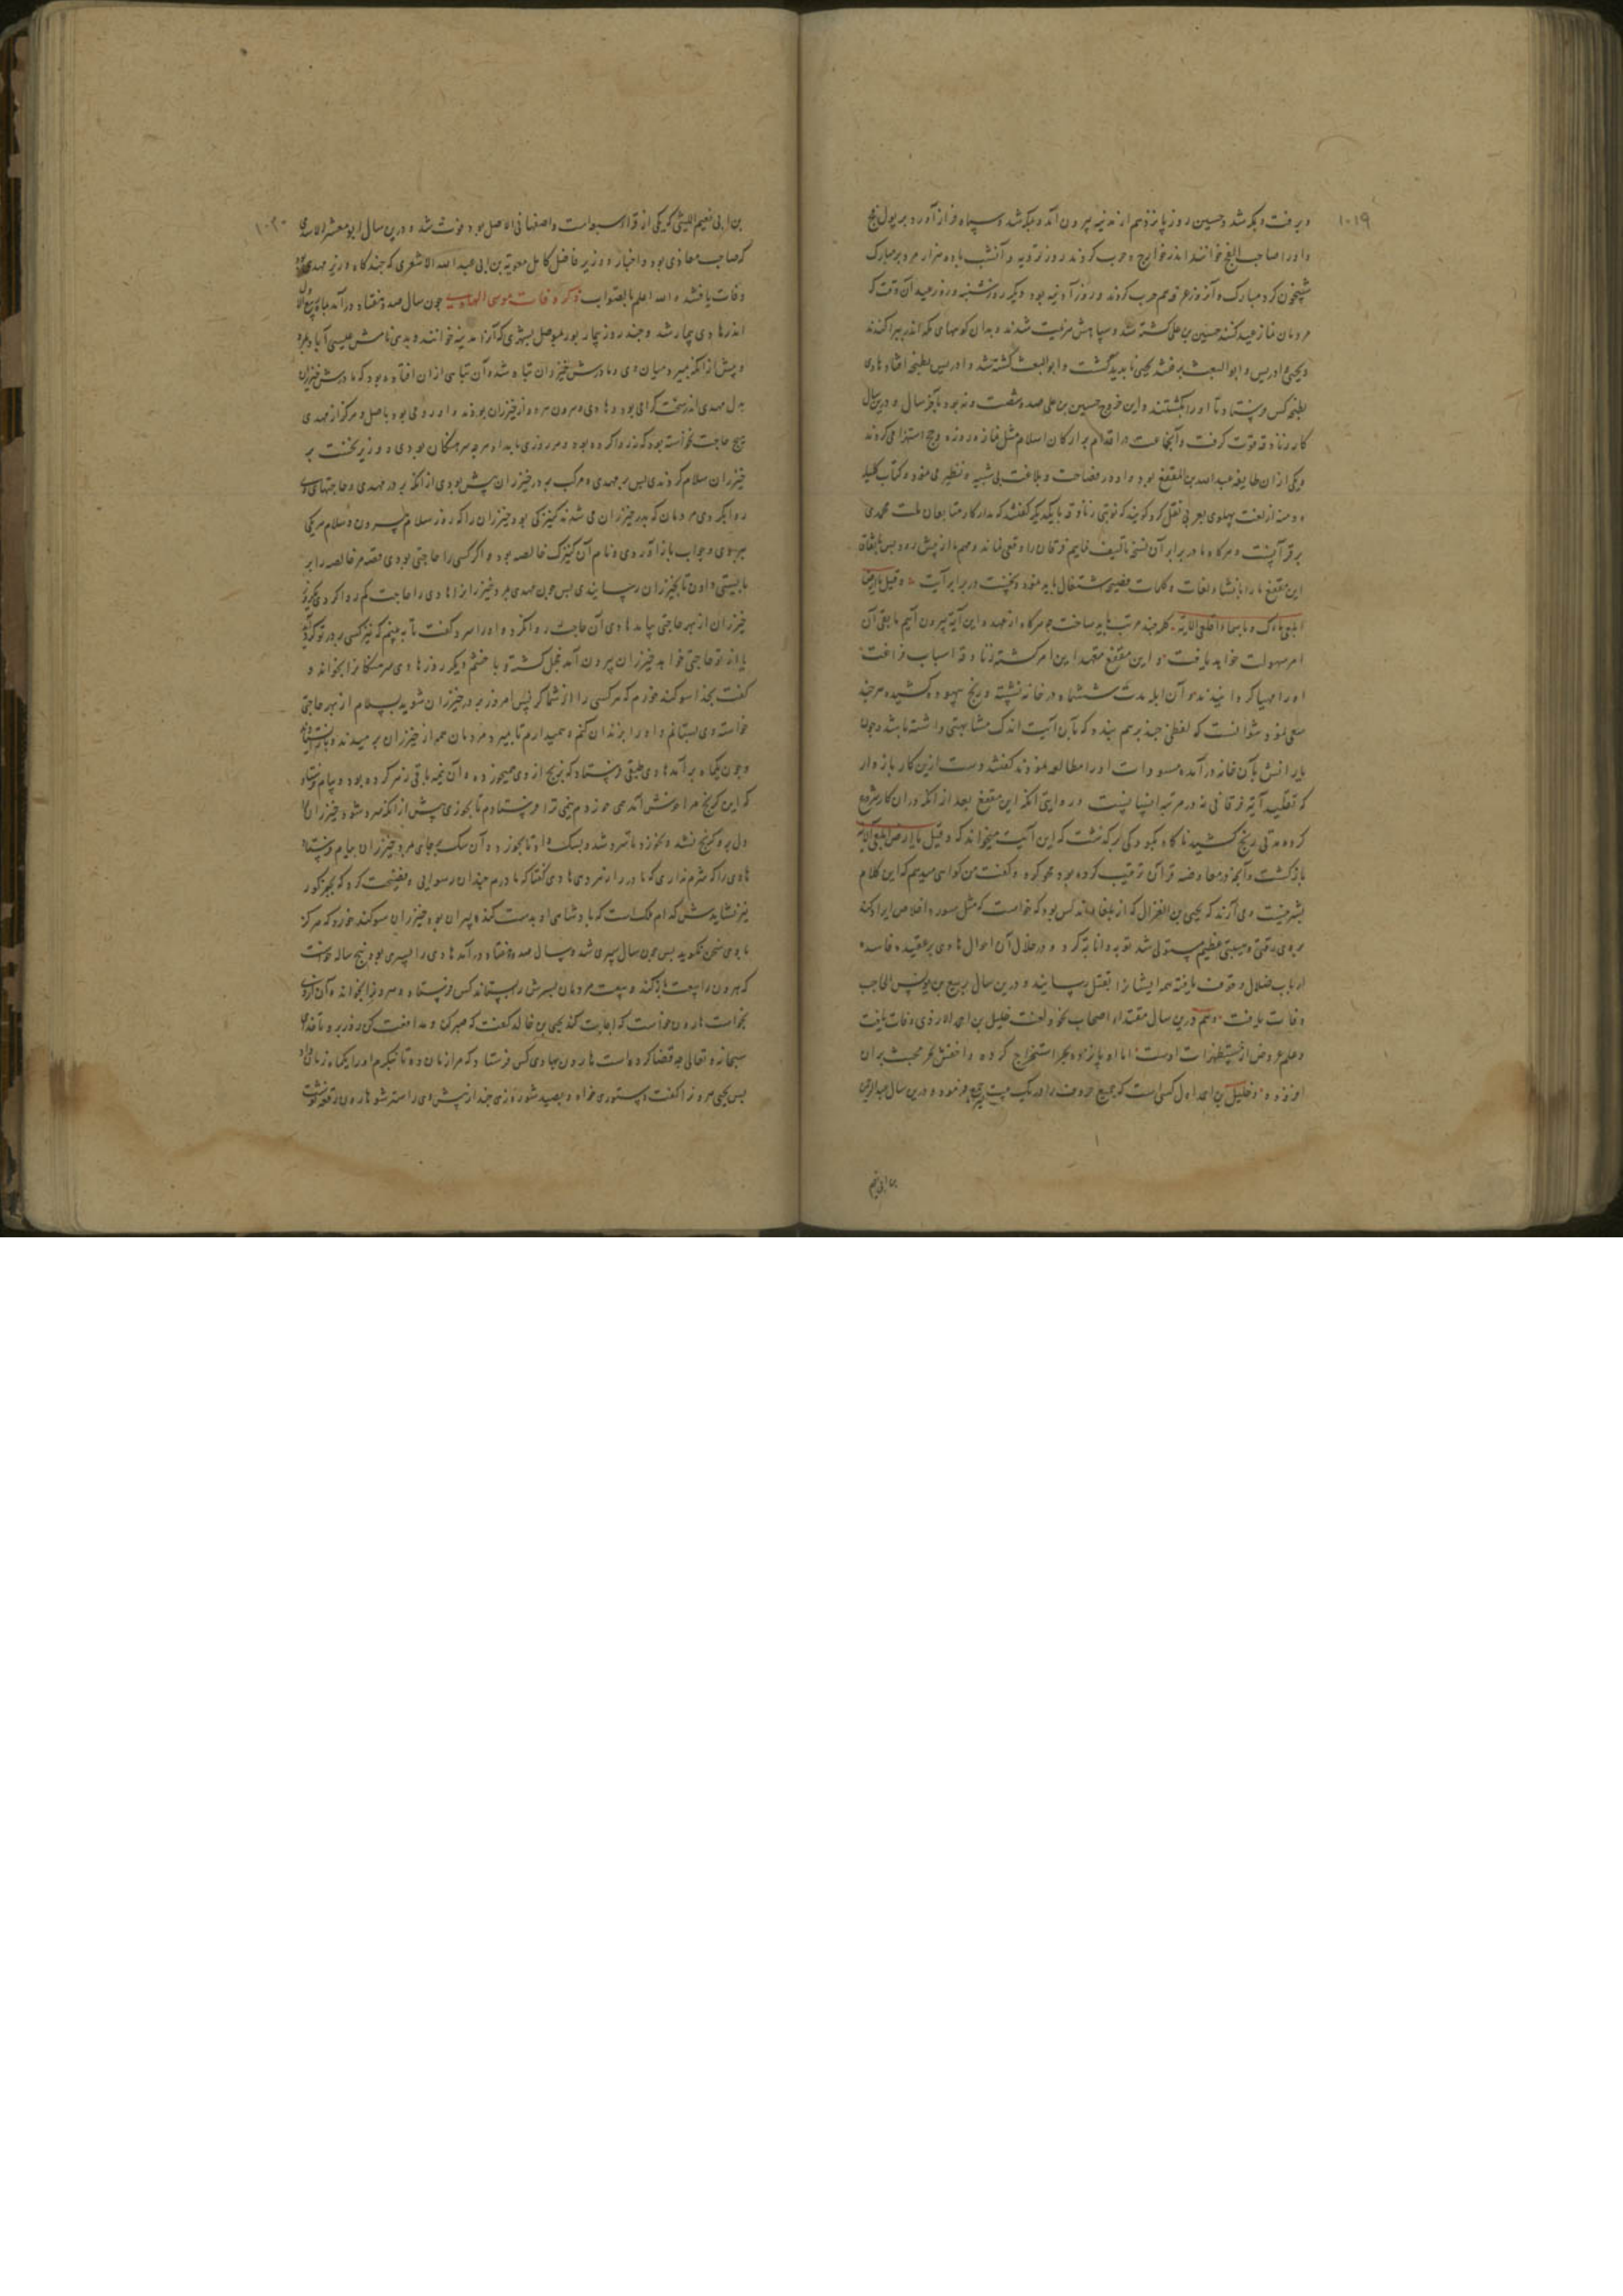 ۱۰۱۹
و برفت و بمکه شد و حسین روز پانزدهم از مدینه بیرون آمد و بمکه شد و سپاه فراز آورد
و او را صاحب الفخ خوانند اندر خوارج و حرب کردند روز ترویه و آنشب با ده هزار مرد بر مبارک
شبیخون کرد و مبارک و آن روز عرفه هم حرب کردند و روز آدینه بود دیگر روز شنبه و روز عید آن وقت که
مردمان نماز عید کنند حسین بن علی کشته شد و سپاهش هزیمت شدند و بدان کوههای مکه اندر پراکندند
و یحیی و ادریس و ابو السعث برفتند یحیی ناپدید گشت و ابو البعث کشته شد و ادریس بطنجه افتاد هادی
بطنجه کس فرستاد تا او را بکشتند و این خروج حسین بن علی صد و شصت و نه بود و درین سال
کار زنادقه قوت گرفت و آنجماعت بر ارکان اسلام مثل نماز و روزه و حج استهزا می کردند
و یکی از ان طایفه عبد الله بن المقفع بود و او در فصاحت و بلاغت بی شبیه و نظیر می نمود و کتاب کلیله
و دمنه از لغت پهلوی بعربی نقل کرد گویند که نوبتی زنادقه با یکدیگر گفتند که مدار کار متابعان ملت محمدی
بر قرآنست و هرگاه ما در برابر آن نسخه تالیف نماییم فرقان را وقعی نماند و مهم ما از پیش رود پس باتفاق
ابن مقفع را بانشاء لغات و کلمات فصیحه اشتغال باید نمود و نخست در برابر آیت و قیل یا ارض
ابلعی ماءک و یا سماء اقلعی الآیه کلمه چند مرتب باید ساخت چه هرگاه از عهده این آیه بیرون آییم باقی آن
امر سهولت خواهد یافت و ابن مقفع متعهد این امر گشته زنادقه اسباب فراغت
او را مهیا گردانیدند و آن ابله مدت ششماه در خانه نشسته و رنج بیهوده کشیده هر چند
سعی نمود نتوانست که لفظی چند بر هم بندد که با آن آیت اندک مشابهتی داشته باشد و چون
یارانش بآن خانه درآمده مسودات او را مطالعه نمودند گفتند دست ازین کار باز دار
که تقلید آیه فرقانی نه در مرتبه انسانیست و در روایتی آنکه ابن مقفع بعد از آنکه در ان کار شروع
کرده مدتی رنج کشید ناگاه بکودکی برگذشت که این آیت میخواند که و قیل یا ارض ابلعی الآیه
بازگشت و آنچه در معارضه قرآن ترتیب کرده بود محو کرد و گفت من گواهی میدهم که این کلام
بشر نیست و می آرند که یحیی بن الغزال که از بلغاء اندلس بود که خواست که مثل سوره اخلاص ایراد کند
بر وی رقتی و هیبتی عظیم مستولی شد توبه و انابه کرد و در خلال آن احوال هادی بر عقیده فاسده
ارباب ضلال وقوف یافته همه ایشانرا بقتل رسانید و درین سال ربیع بن یونس الحاجب
وفات یافت و هم درین سال مقتداء اصحاب نحو و لغت خلیل بن احمد ازدی وفات یافت
و علم عروض از مستظهرات اوست اما او پانزده بحر استخراج کرده و اخفش بحر مجتث بران
افزوده و خلیل بن احمد اول کسی است که جمیع حروف را در یک بیت جمع فرمود و درین سال عبد الرحمن
بن ابی نعیم
۱۰۲۰
بن ابی نعیم اللیثی که یکی از قراء سبعه است و اصفهانی الاصل بود فوت شد و درین سال ابو معشر السندی
که صاحب مغازی بود و اخبار و وزیر فاضل کامل معویة بن ابی عبد الله الاشعری که چندگاه وزیر مهدی بود
وفات یافتند و الله اعلم بالصواب ذکر وفات موسی الهادی چون سال صد و هفتاد درآمد بماه ربیع الاول
اندر هادی بیمار شد و چند روز بیمار بود بموصل بشهری که آنرا مدینه خوانند و بدیهی نامش عیسی آباد بمرد
و پیش از آنکه بمیرد میان وی و مادرش خیزران تباه شد و آن تباهی از ان افتاده بود که مادرش خیزران
بدل مهدی اندر سخت گرامی بود و هادی و هرون هر دو از خیزران بودند و او رومی بود باصل و هرگز از مهدی
هیچ حاجت نخواسته بود که نه روا کرده بود و هر روزی بامداد هر چه سرهنگان بودی و وزیر نخست بر
خیزران سلام کردندی پس بر مهدی و مرکب بر در خیزران بیش بودی از آنکه بر در مهدی و حاجتهای وی
روا کردی مردمان که بدر خیزران می شدند کنیزکی بود خیزران را که روز سلام بیرون و سلام هر یکی
ببردی و جواب باز آوردی و نام آن کنیزک خالصه بود و اگر کسی را حاجتی بودی قصه مر خالصه را بر
بایستی دادن تا بخیزران رسانیدی پس چون مهدی بمرد خیزران را هادی را حاجت کم روا کردی
خیزران از بهر حاجتی بیامد هادی آن حاجت روا نکرد و او را سرد گفت تا نه بینم که نیز کسی بر در تو گرد آید
یا از تو حاجتی خواهد خیزران بیرون آمد خجل گشته و با خشم دیگر روز هادی سرهنگانرا بخواند و
گفت بخدا سوگند خورم که هر کسی را از شما که پس امروز بر در خیزران شوید بسلام از بهر حاجتی
خواسته وی بستانم و او را بزندان کنم و همیدارم تا بمیرد و مردمان همه از خیزران برمیدند
و چون یکماه برآمد هادی طبقی فرستاد که برنج از وی میخورد و آن نیمه باقی زهر کرده بود و پیام فرستاد
که این گرنج مرا خوش آمد می خوردم نیمی ترا فرستادم تا بخوری پیش از آنکه سرد شود خیزران را
دل بر گرنج نشد و نخورد تا سرد شد و بسگ داد تا بخورد و آن سگ بر جای مرد خیزران پیام فرستاد
هادی را که شرم نداری که مادر را زهر دهی هادی گفتا که مادرم چندان رسوایی و فضیحت کرد که بجز گور
نیز نشایدش کدام ملک است که پادشاهی او بدست گنده پیران بود خیزران سوگند خورد که هرگز
با وی سخن نگوید پس چون سال سپری شد و سال صد و هفتاد درآمد هادی را پسری بود پنج ساله خواست
که هرون را بیعت باز کند و بیعت مردمان پسرش را بستاند کس فرستاد و هرون را بخواند و آن از وی
بخواست هارون خواست که اجابت کند یحیی بن خالد گفت که صبر کن و مدافعت کن روز بروز تا خدای
سبحانه و تعالی چه قضا کرده است هارون بهادی کس فرستاد که مرا زمان ده تا بنگرم او را یکماه زمان داد
پس یحیی هرون را گفت دستوری خواه و بصید شو روزی چند از پیش وی راستر شو هارون رقعه نوشت